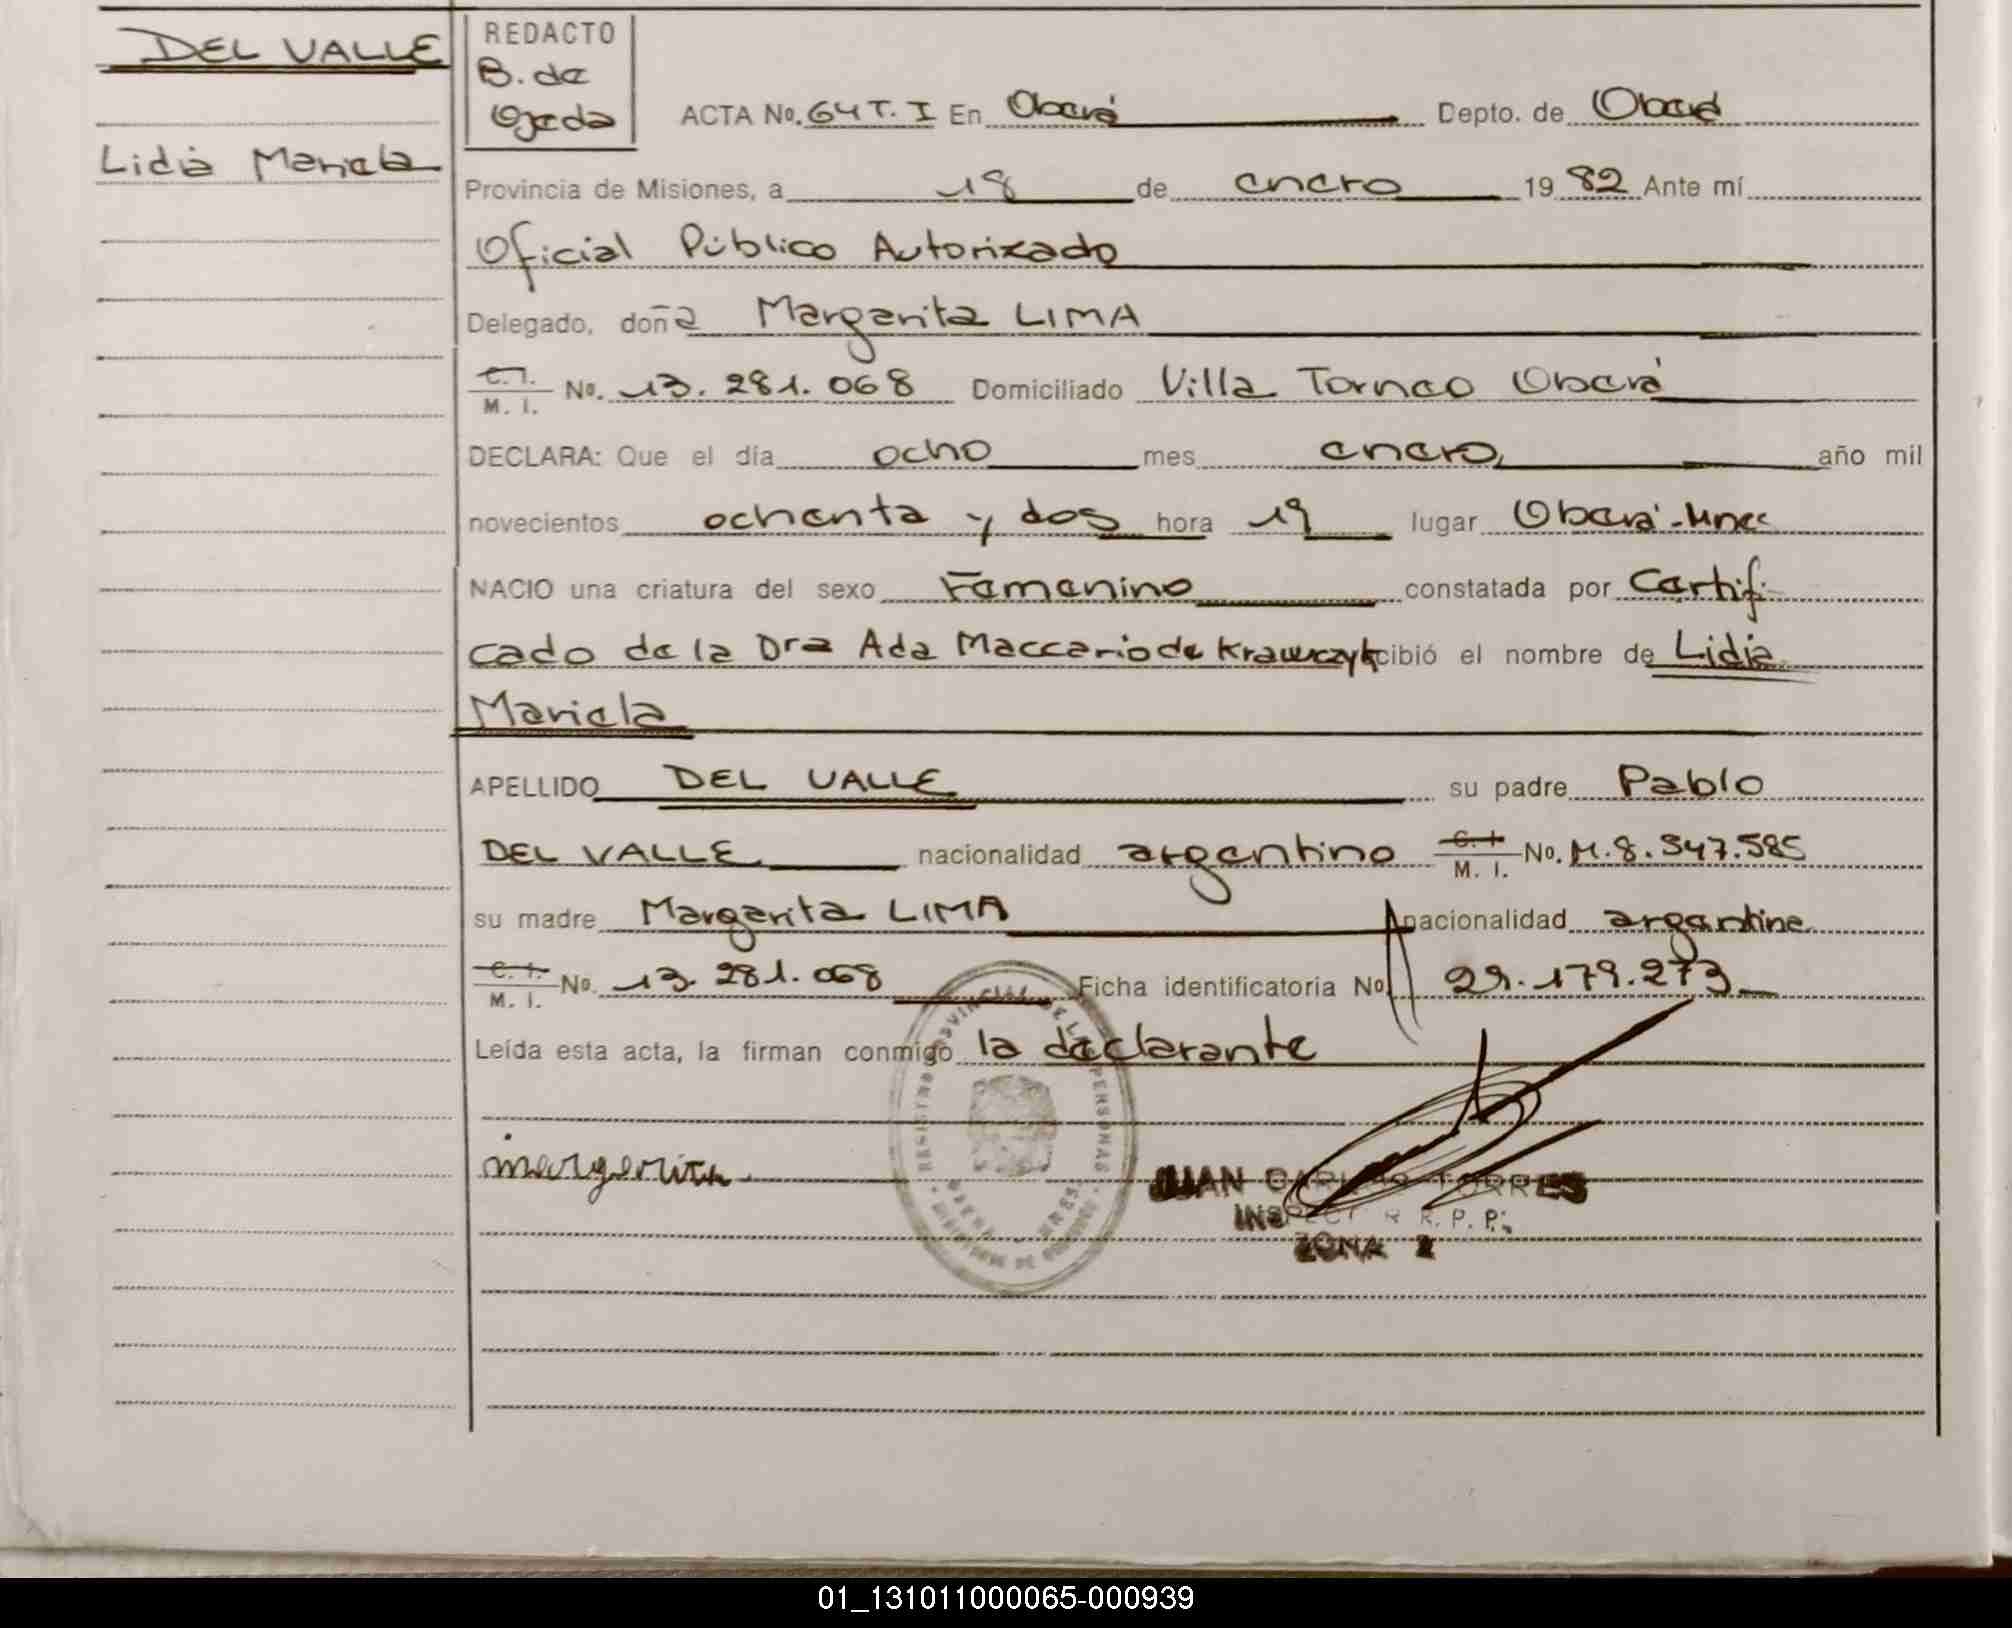 DEL VALLE
Lidia Mariela
REDACTO
B. de
Ojeda
ACTA No. 64 T. I En Oberá Depto. de Oberá
Provincia de Misiones, a 18 de enero 19 82 Ante mí
Oficial Público Autorizado
Delegado, doña Margarita LIMA
C. I.
M. I. No. 13.281.068 Domiciliado Villa Torneo Oberá
DECLARA: Que el día ocho mes enero año mil
novecientos ochenta y dos hora 19 lugar Oberá-Mnes
NACIO una criatura del sexo Femenino constatada por Certifi-
cado de la Dra Ada Maccario de Krawczyk cibió el nombre de Lidia
Mariela
APELLIDO DEL VALLE su padre Pablo
DEL VALLE nacionalidad argentino C. I.
M. I. No. M.8.547.585
su madre Margarita LIMA nacionalidad argentina
C. I.
M. I. No. 13.281.068 Ficha identificatoria No 29.179.273
Leída esta acta, la firman conmigo la declarante
margarita
JUAN CARLOS TORRES
INSPECTOR R. P. P.
ZONA 2
01_131011000065-000939